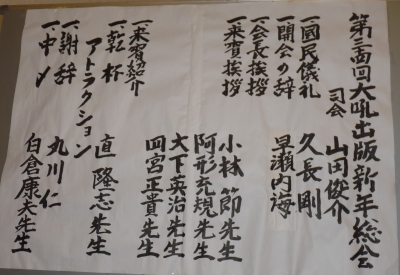 第三十四回大吼出版新年総会
司会 山田俊介
一、国民儀礼 久長 剛
一、開会の辞 早瀬内海
一、会長挨拶
一、来賓挨拶 小林 節先生
阿形充規先生
大下英治先生
四宮正貴先生
一、来賓紹介
一、乾杯 直 隆志先生
アトラクション
一、謝辞 丸川 仁
一、中〆 白倉康夫先生